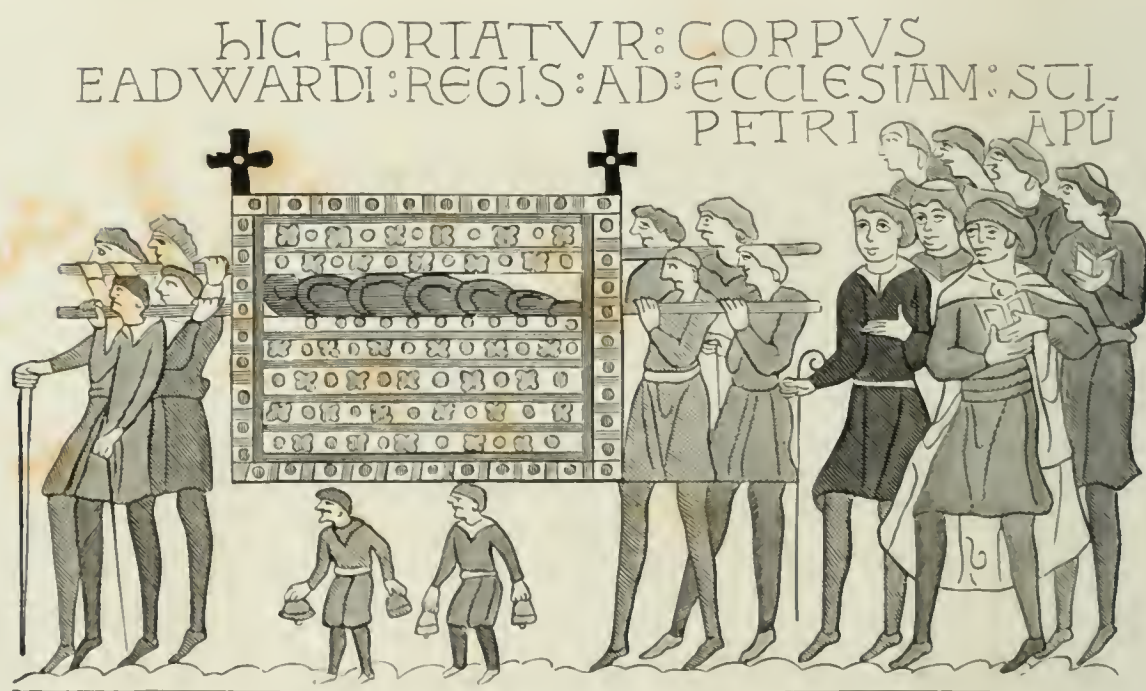 hIC PORTATVR : CORPVS
EADWARDI : REGIS : AD : ECCLESIAM : SCTI
PETRI APŪ